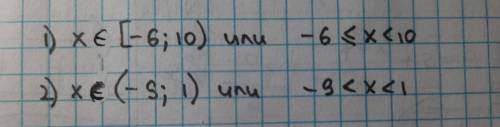 1) x ∈ [-6; 10) или -6 ⩽ x < 10
2) x ∈ (-9; 1) или -9 < x < 1